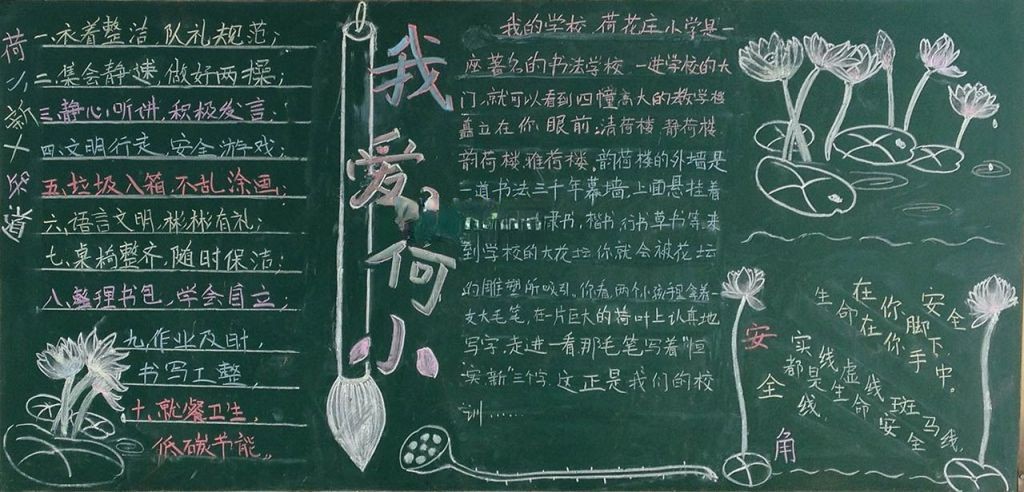 荷小新十字道
一、衣着整洁 队礼规范；
二、集会静速 做好两操；
三、静心听讲,积极发言；
四、文明行走 安全游戏；
五、垃圾入箱,不乱涂画；
六、语言文明,彬彬有礼；
七、桌椅整齐,随时保洁；
八、整理书包,学会自立；
九、作业及时,
书写工整,
十、就餐卫生,
低碳节能。
我爱荷小
我的学校 荷花庄小学是一
座著名的书法学校,一进学校的大
门,就可以看到四幢高大的教学楼
矗立在你眼前:清荷楼 静荷楼
韵荷楼,雅荷楼,韵荷楼的外墙是
一道书法三千年幕墙,上面悬挂着
隶书,楷书,行书草书等,来
到学校的大花坛你就会被花坛
的雕塑所吸引,你看,两个孩提拿着一
支大毛笔,在一片巨大的荷叶上认真地
写字,走进一看那毛笔写着"恒
实新"三个字,这正是我们的校
训……
安全角
安全
在你脚下
生命在你手中。
实线虚线斑马线
都是生命安全线